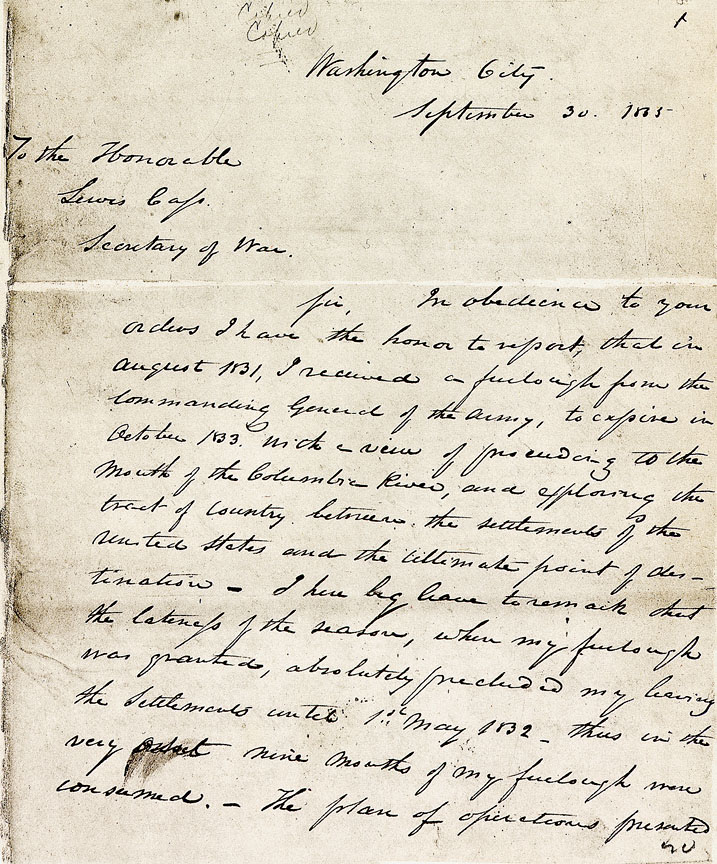 Copied
Copied
1
Washington City.
September 30. 1835
To the Honorable
Lewis Cass.
Secretary of War.
Sir, In obedience to your
orders I have the honor to report, that in
august 1831, I received a furlough from the
Commanding General of the Army, to expire in
October 1833. with a view of proceeding to the
Mouth of the Columbia River, and exploring the
tract of Country between the settlements of the
united states and the ultimate point of des-
tination – I here beg leave to remark that
the lateness of the season, when my furlough
was granted, absolutely precluded my leaving
the Settlements until 1st May 1832 – thus in the
very nine months of my furlough were
consumed. – The plan of operations presented